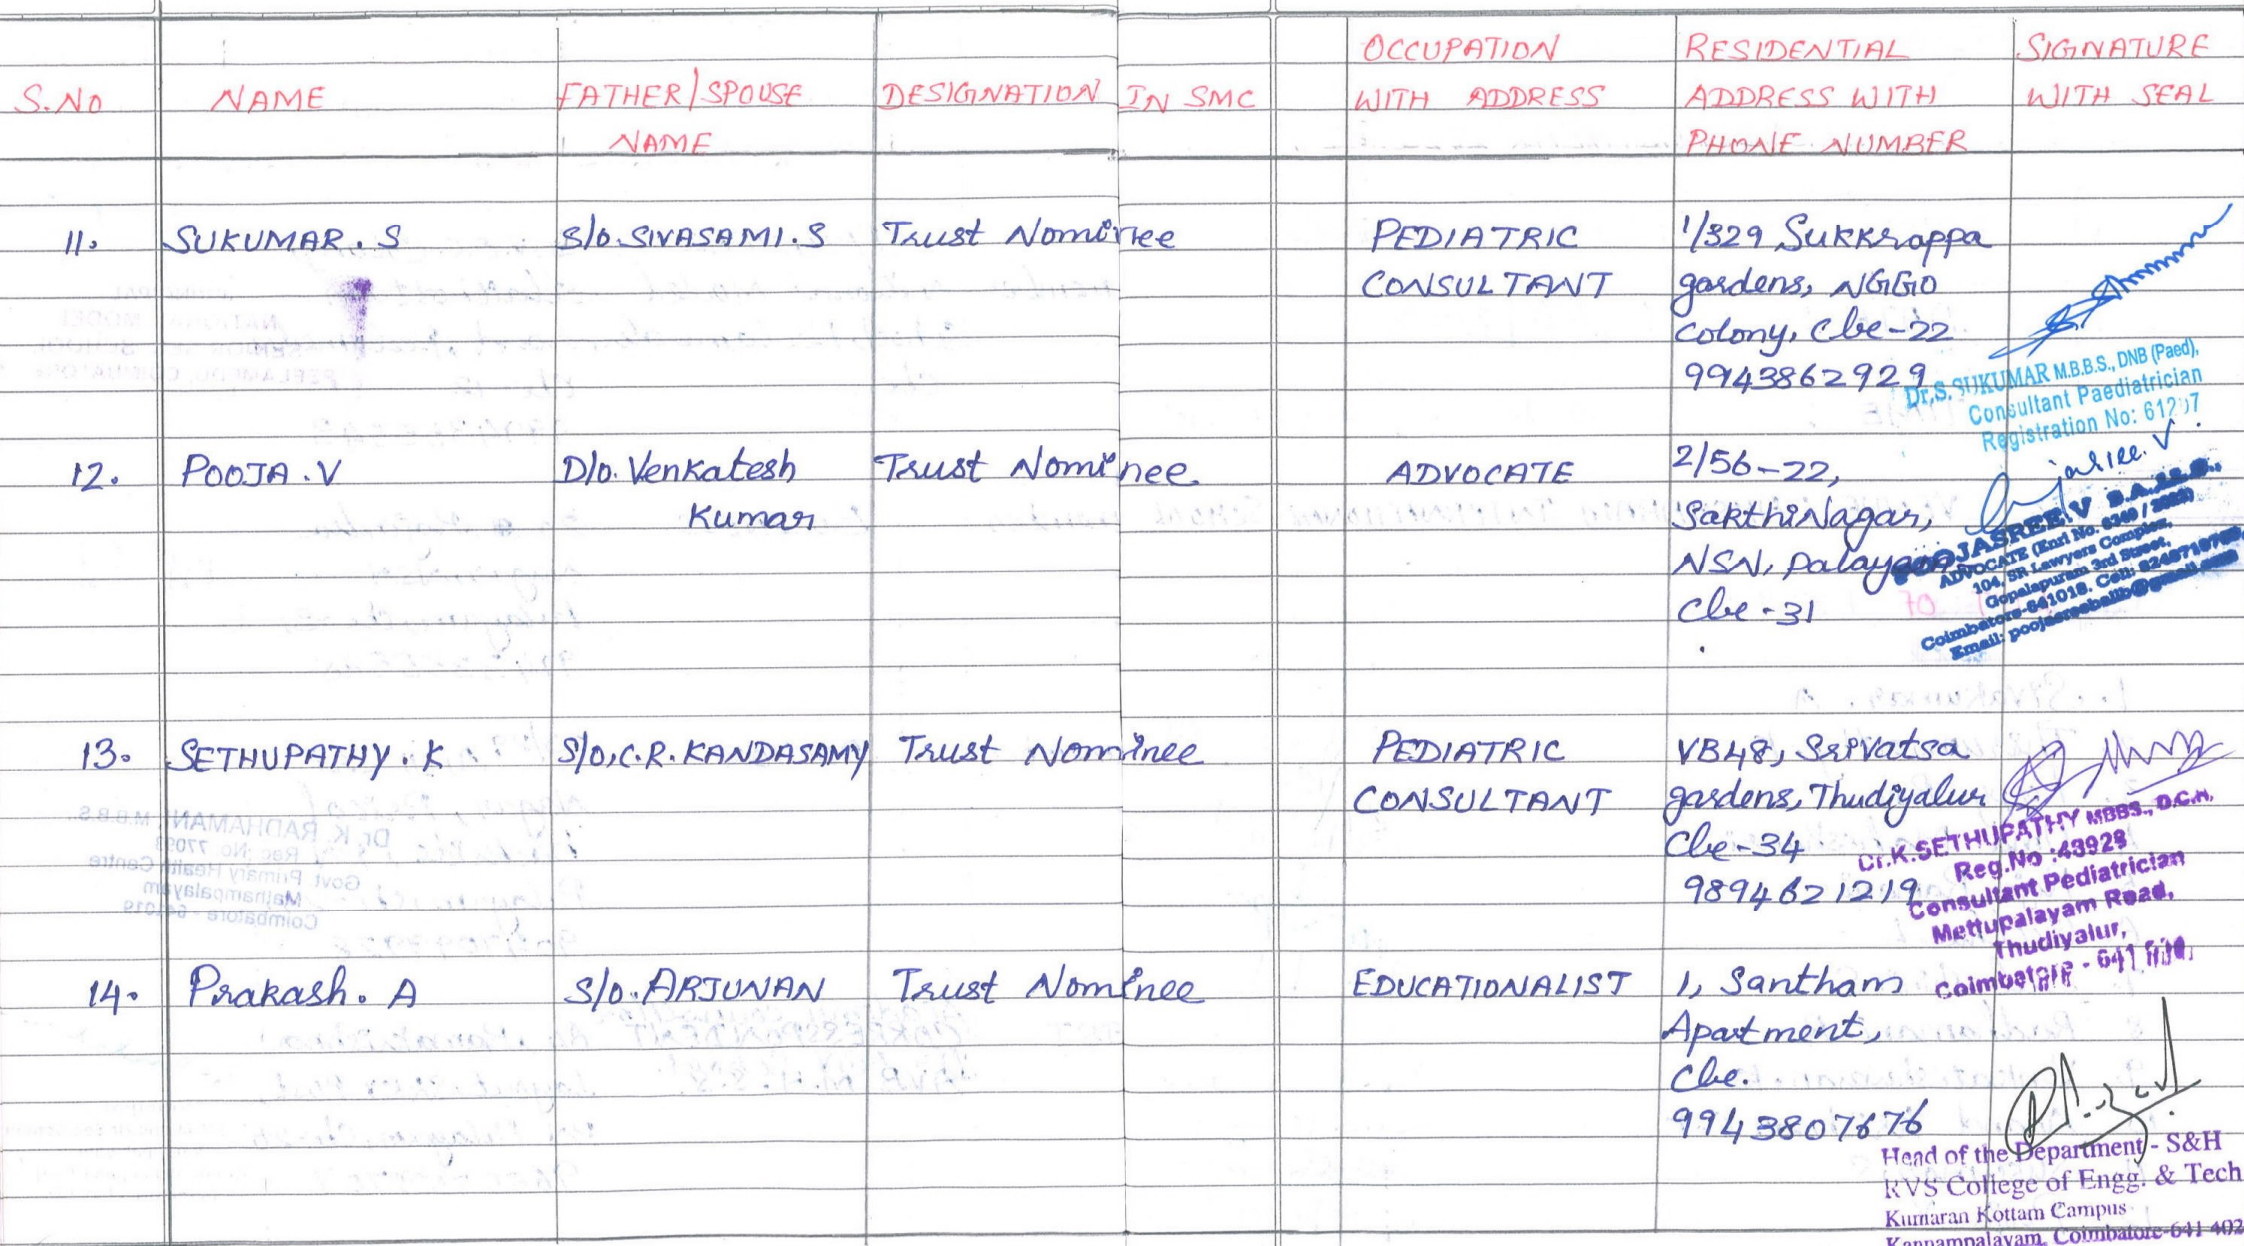 S.NO NAME FATHER/SPOUSE NAME DESIGNATION IN SMC OCCUPATION WITH ADDRESS RESIDENTIAL ADDRESS WITH PHONE NUMBER SIGNATURE WITH SEAL
11. SUKUMAR. S S/o. SIVASAMI. S Trust Nominee PEDIATRIC 1/329 Sukkrappa
CONSULTANT gardens, NGGO
Colony, Cbe-22
9943862929
Dr.S. SUKUMAR M.B.B.S., DNB (Paed),
Consultant Paediatrician
Registration No:
12. POOJA .V D/o. Venkatesh Trust Nominee ADVOCATE 2/56-22,
Kumar SakthiNagar,
NSN, Palayam
Cbe-31
POOJASREE.V B.A.,LL.B.,
ADVOCATE (Enrl No.
104, SR Lawyers Complex,
Gopalapuram 3rd Street,
Coimbatore-641018. Cell:
Email:
13. SETHUPATHY. K S/o. C.R. KANDASAMY Trust Nominee PEDIATRIC VB48, Srivatsa
CONSULTANT gardens, Thudiyalur
Cbe-34
9894621219
Dr.K.SETHUPATHY MBBS., D.C.H.
Reg.No :43928
Consultant Pediatrician
Mettupalayam Road,
Thudiyalur,
Coimbatore - 641
14. Prakash. A S/o. ARJUNAN Trust Nominee EDUCATIONALIST 1, Santham
Apartment,
Cbe.
9943807676
Head of the Department - S&H
RVS College of Engg. & Tech
Kumaran Kottam Campus
Kannampalayam, Coimbatore-641 402